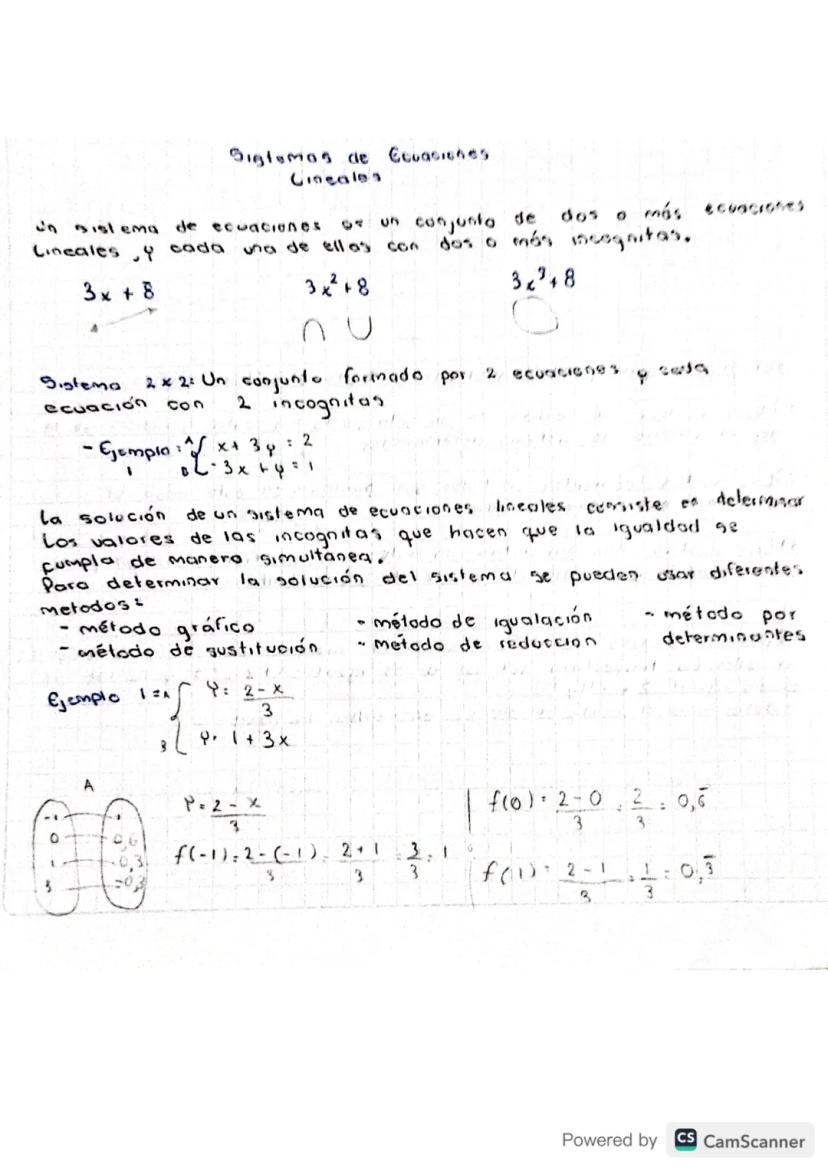 Sistemas de Ecuaciones
Lineales
Un sistema de ecuaciones es un conjunto de dos o más ecuaciones
Lineales, y cada una de ellas con dos o más incognitas.
3x + 8 3x² + 8 3x³ + 8
Sistema 2x2: Un conjunto formado por 2 ecuaciones y cada
ecuación con 2 incognitas
- Ejemplo: A { x + 3y = 2
1 B { -3x + y = 1
La solución de un sistema de ecuaciones lineales consiste en determinar
Los valores de las incognitas que hacen que la igualdad se
cumpla de manera simultánea.
Para determinar la solución del sistema se pueden usar diferentes
metodos:
- método gráfico - método de igualación - método por
- método de sustitución - método de reducción determinantes
Ejemplo 1 = A { y = 2 - x / 3
B { y = 1 + 3x
A
-1 1
0 0,6
1 0,3
3 -0,3
y = 2 - x / 3
f(-1) = 2 - (-1) / 3 = 2 + 1 / 3 = 3 / 3 = 1
f(0) = 2 - 0 / 3 = 2 / 3 = 0,6̅
f(1) = 2 - 1 / 3 = 1 / 3 = 0,3̅
Powered by CS CamScanner